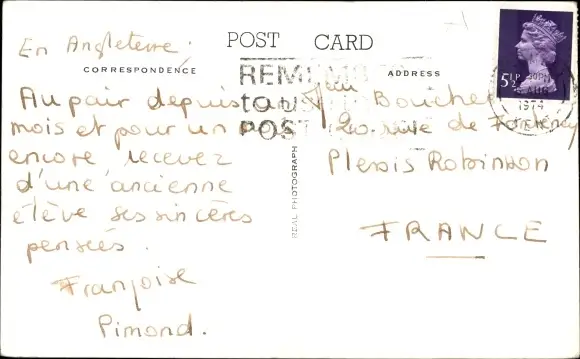 En Angleterre.
POST CARD
CORRESPONDENCE
ADDRESS
REMEMBER
to use
POST
5½P
AUG
1974
Au pair depuis un
mois et pour un
encore recevez
d'une ancienne
élève ses sincères
pensées.
Françoise
Pimond.
REAL PHOTOGRAPH
Boucher
20. rue de Fontenay
Plessis Robinson
FRANCE